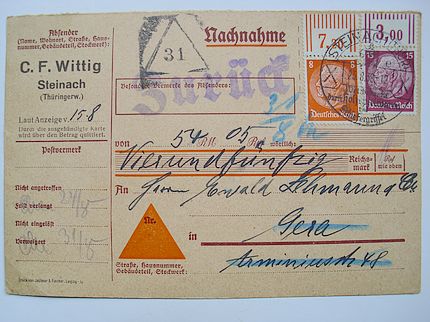 Absender
(Name, Wohnort, Straße, Haus-
nummer, Gebäudeteil, Stockwerk:)
C. F. Wittig
Steinach
(Thüringerw.)
Laut Anzeige v. 15-8
Durch die ausgehändigte Karte
wird über den Betrag quittiert.
Postvermerk
Nicht angetroffen
Frist verlangt
Nicht eingelöst
Verweigert
31
Nachnahme
Besondere Vermerke des Absenders:
Zurück
7,20
3,00
8
15
Deutsches Reich
Deutsches Reich
STEINACH
von 54 RM 05 Rpf wörtlich:
Vierundfünfzig
Reichs-
mark
Rpf
wie oben
An Herrn Ewald Lehmann
Nr.
in Gera
Arminiusstr 48
Straße, Hausnummer,
Gebäudeteil, Stockwerk: